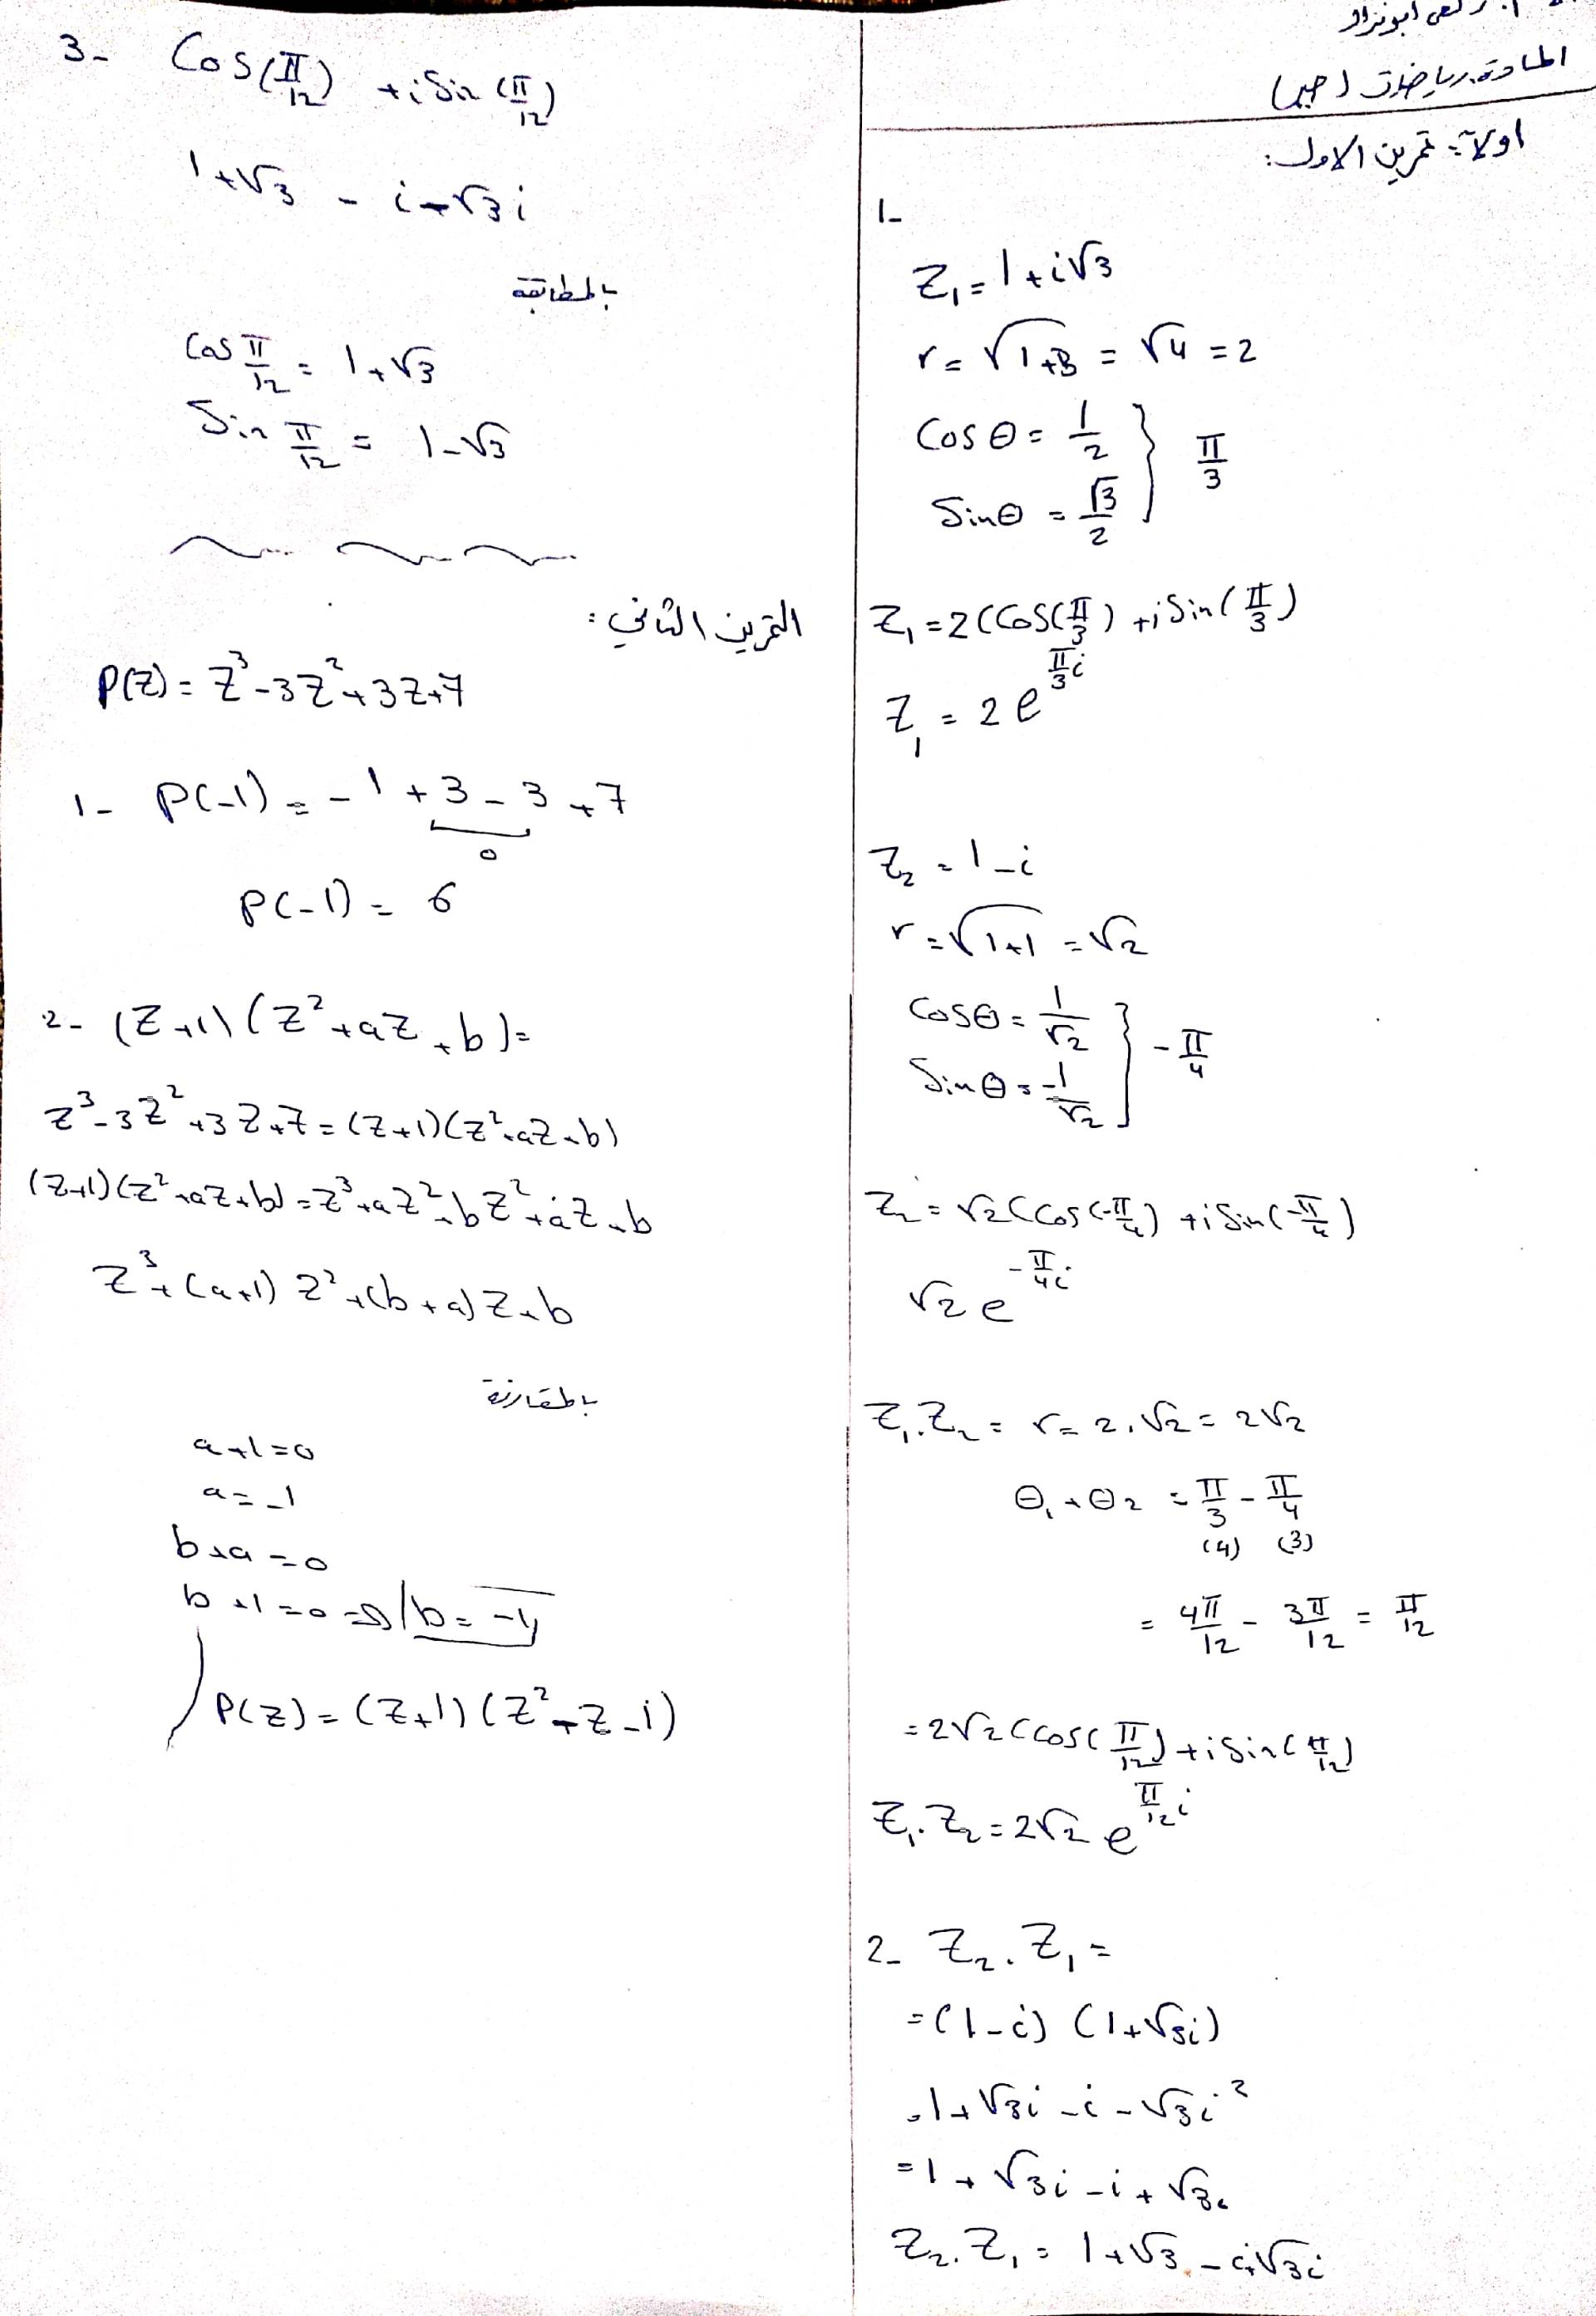 أبونزار
المادة: رياضيات (جبر)
اولاً: تمرين الاول:
1-
Z₁ = 1 + i√3
r = √1+3 = √4 = 2
Cos Θ = 1/2 } π/3
Sin Θ = √3/2
Z₁ = 2(Cos(π/3) + i Sin(π/3)
Z₁ = 2 e^π/3 i
Z₂ = 1 - i
r = √1+1 = √2
Cos Θ = 1/√2 } -π/4
Sin Θ = -1/√2
Z₂ = √2(Cos(-π/4) + i Sin(-π/4)
√2 e^-π/4 i
Z₁.Z₂ = r = 2.√2 = 2√2
Θ₁ + Θ₂ = π/3 - π/4
(4) (3)
= 4π/12 - 3π/12 = π/12
= 2√2(Cos(π/12) + i Sin(π/12)
Z₁.Z₂ = 2√2 e^π/12 i
2- Z₂.Z₁ =
= (1 - i) (1 + √3i)
= 1 + √3i - i - √3i²
= 1 + √3i - i + √3
Z₂.Z₁ = 1 + √3 - i + √3i
3- Cos(π/12) + i Sin(π/12)
1 + √3 - i + √3i
بالمطابقة
Cos π/12 = 1 + √3
Sin π/12 = 1 - √3
التمرين الثاني:
P(Z) = Z³ - 3Z² + 3Z + 7
1- P(-1) = -1 + 3 - 3 + 7
0
P(-1) = 6
2- (Z+1)(Z² + aZ + b) =
Z³ - 3Z² + 3Z + 7 = (Z+1)(Z² + aZ + b)
(Z+1)(Z² + aZ + b) = Z³ + aZ² + bZ² + aZ + b
Z³ + (a+1) Z² + (b+a) Z + b
بالمقارنة
a + 1 = 0
a = -1
b + a = 0
b + 1 = 0 ⇒ b = -1
P(Z) = (Z+1)(Z² + Z - 1)